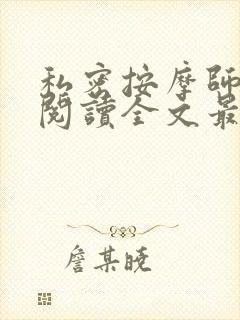 私密按摩師
閱讀全文最
詹某曉